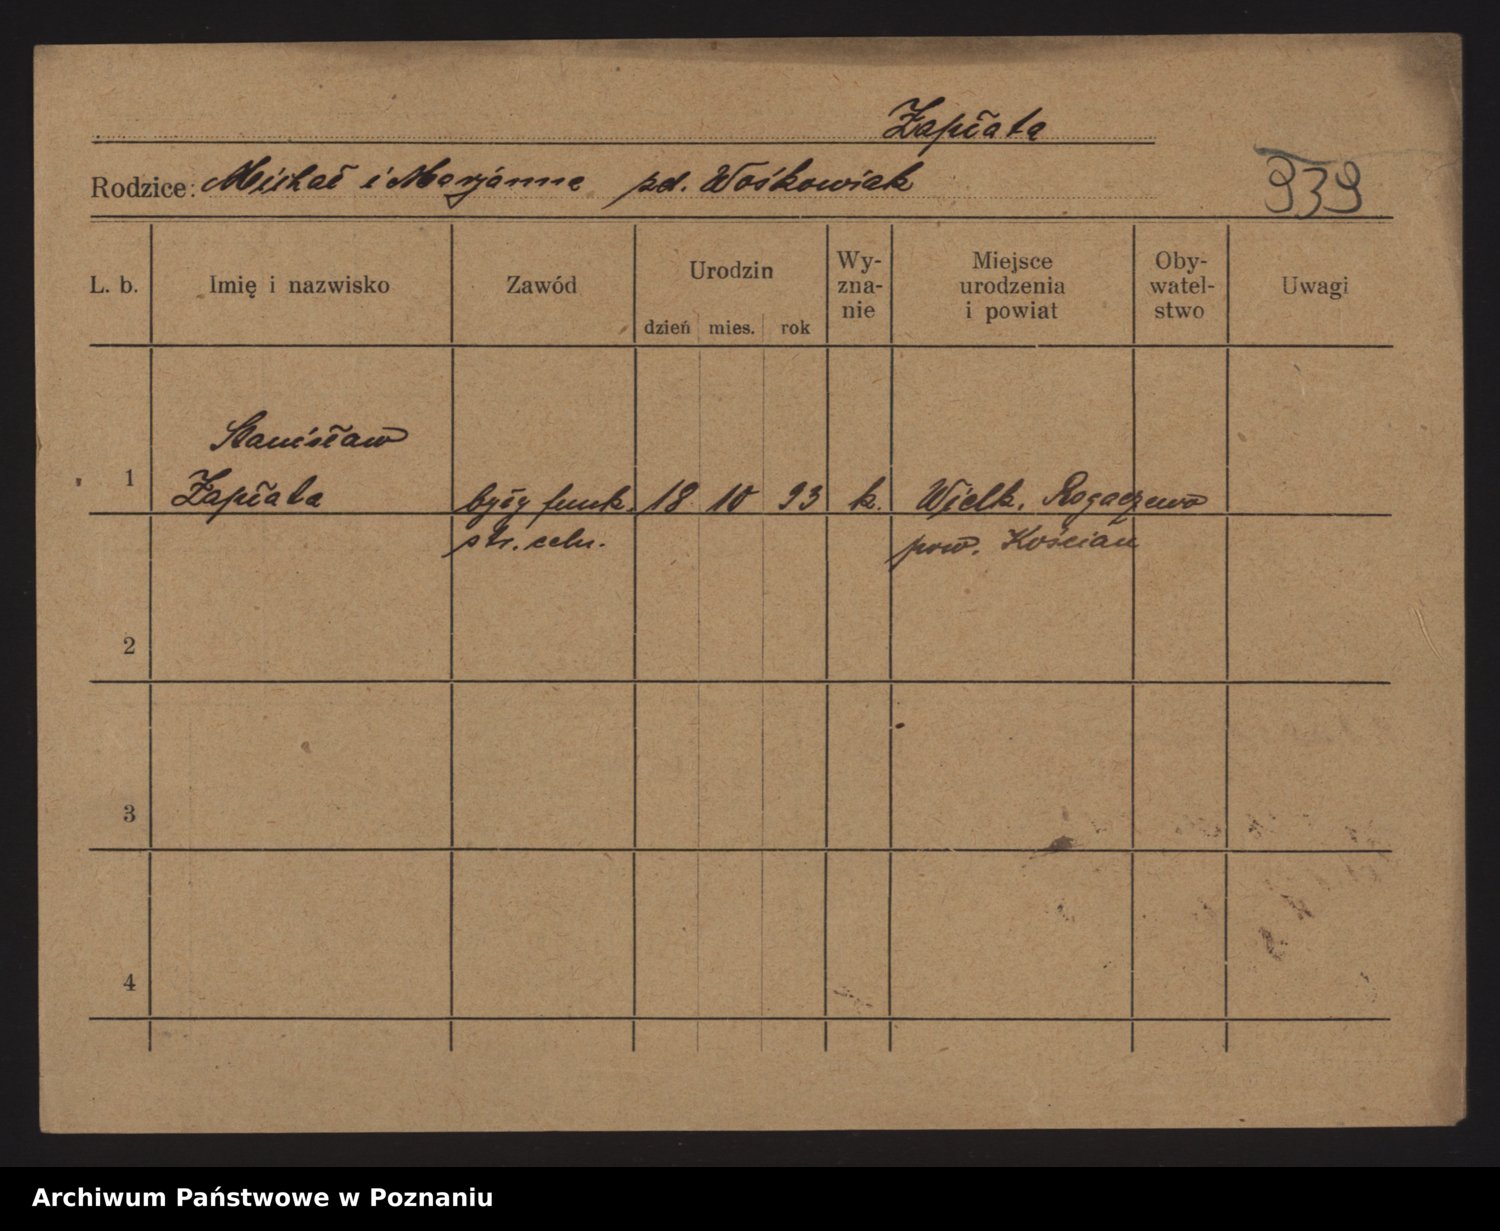 Zapłata
Rodzice: Michał i Marjanna zd. Wośkowiak
939
L. b. Imię i nazwisko Zawód Urodzin dzień mies. rok Wy-zna-nie Miejsce urodzenia i powiat Oby-watel-stwo Uwagi
Stanisław
1 Zapłata były funk. 18 10 93 k. Wielk. Rogaczewo
str. celn. pow. Kościan
2
3
4
Archiwum Państwowe w Poznaniu